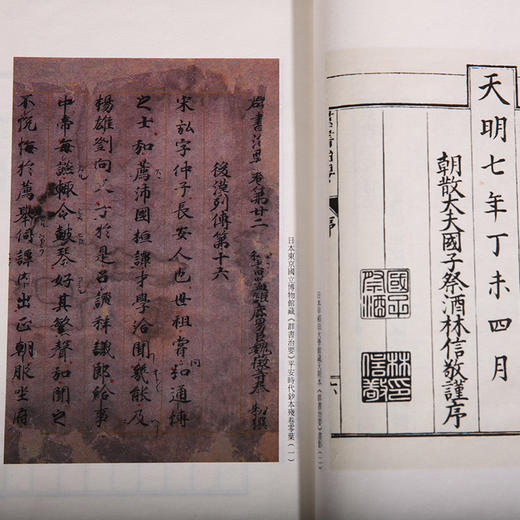 天明七年丁未四月
朝散大夫國子祭酒林信敬謹序
國子祭酒
林印信敬
序
六
群書治要卷第廿二
後漢列傳第十六
宋弘字仲子長安人也世祖嘗問弘通博
之士弘薦沛國桓譚才學洽聞幾能及
楊雄劉向父子於是召譚拜議郎給事
中帝每讌輒令鼓琴好其繁聲弘聞之
不悅悔於薦舉伺譚內出正朝服坐府
日本東京國立博物館藏《群書治要》平安時代鈔本殘卷零葉（一）